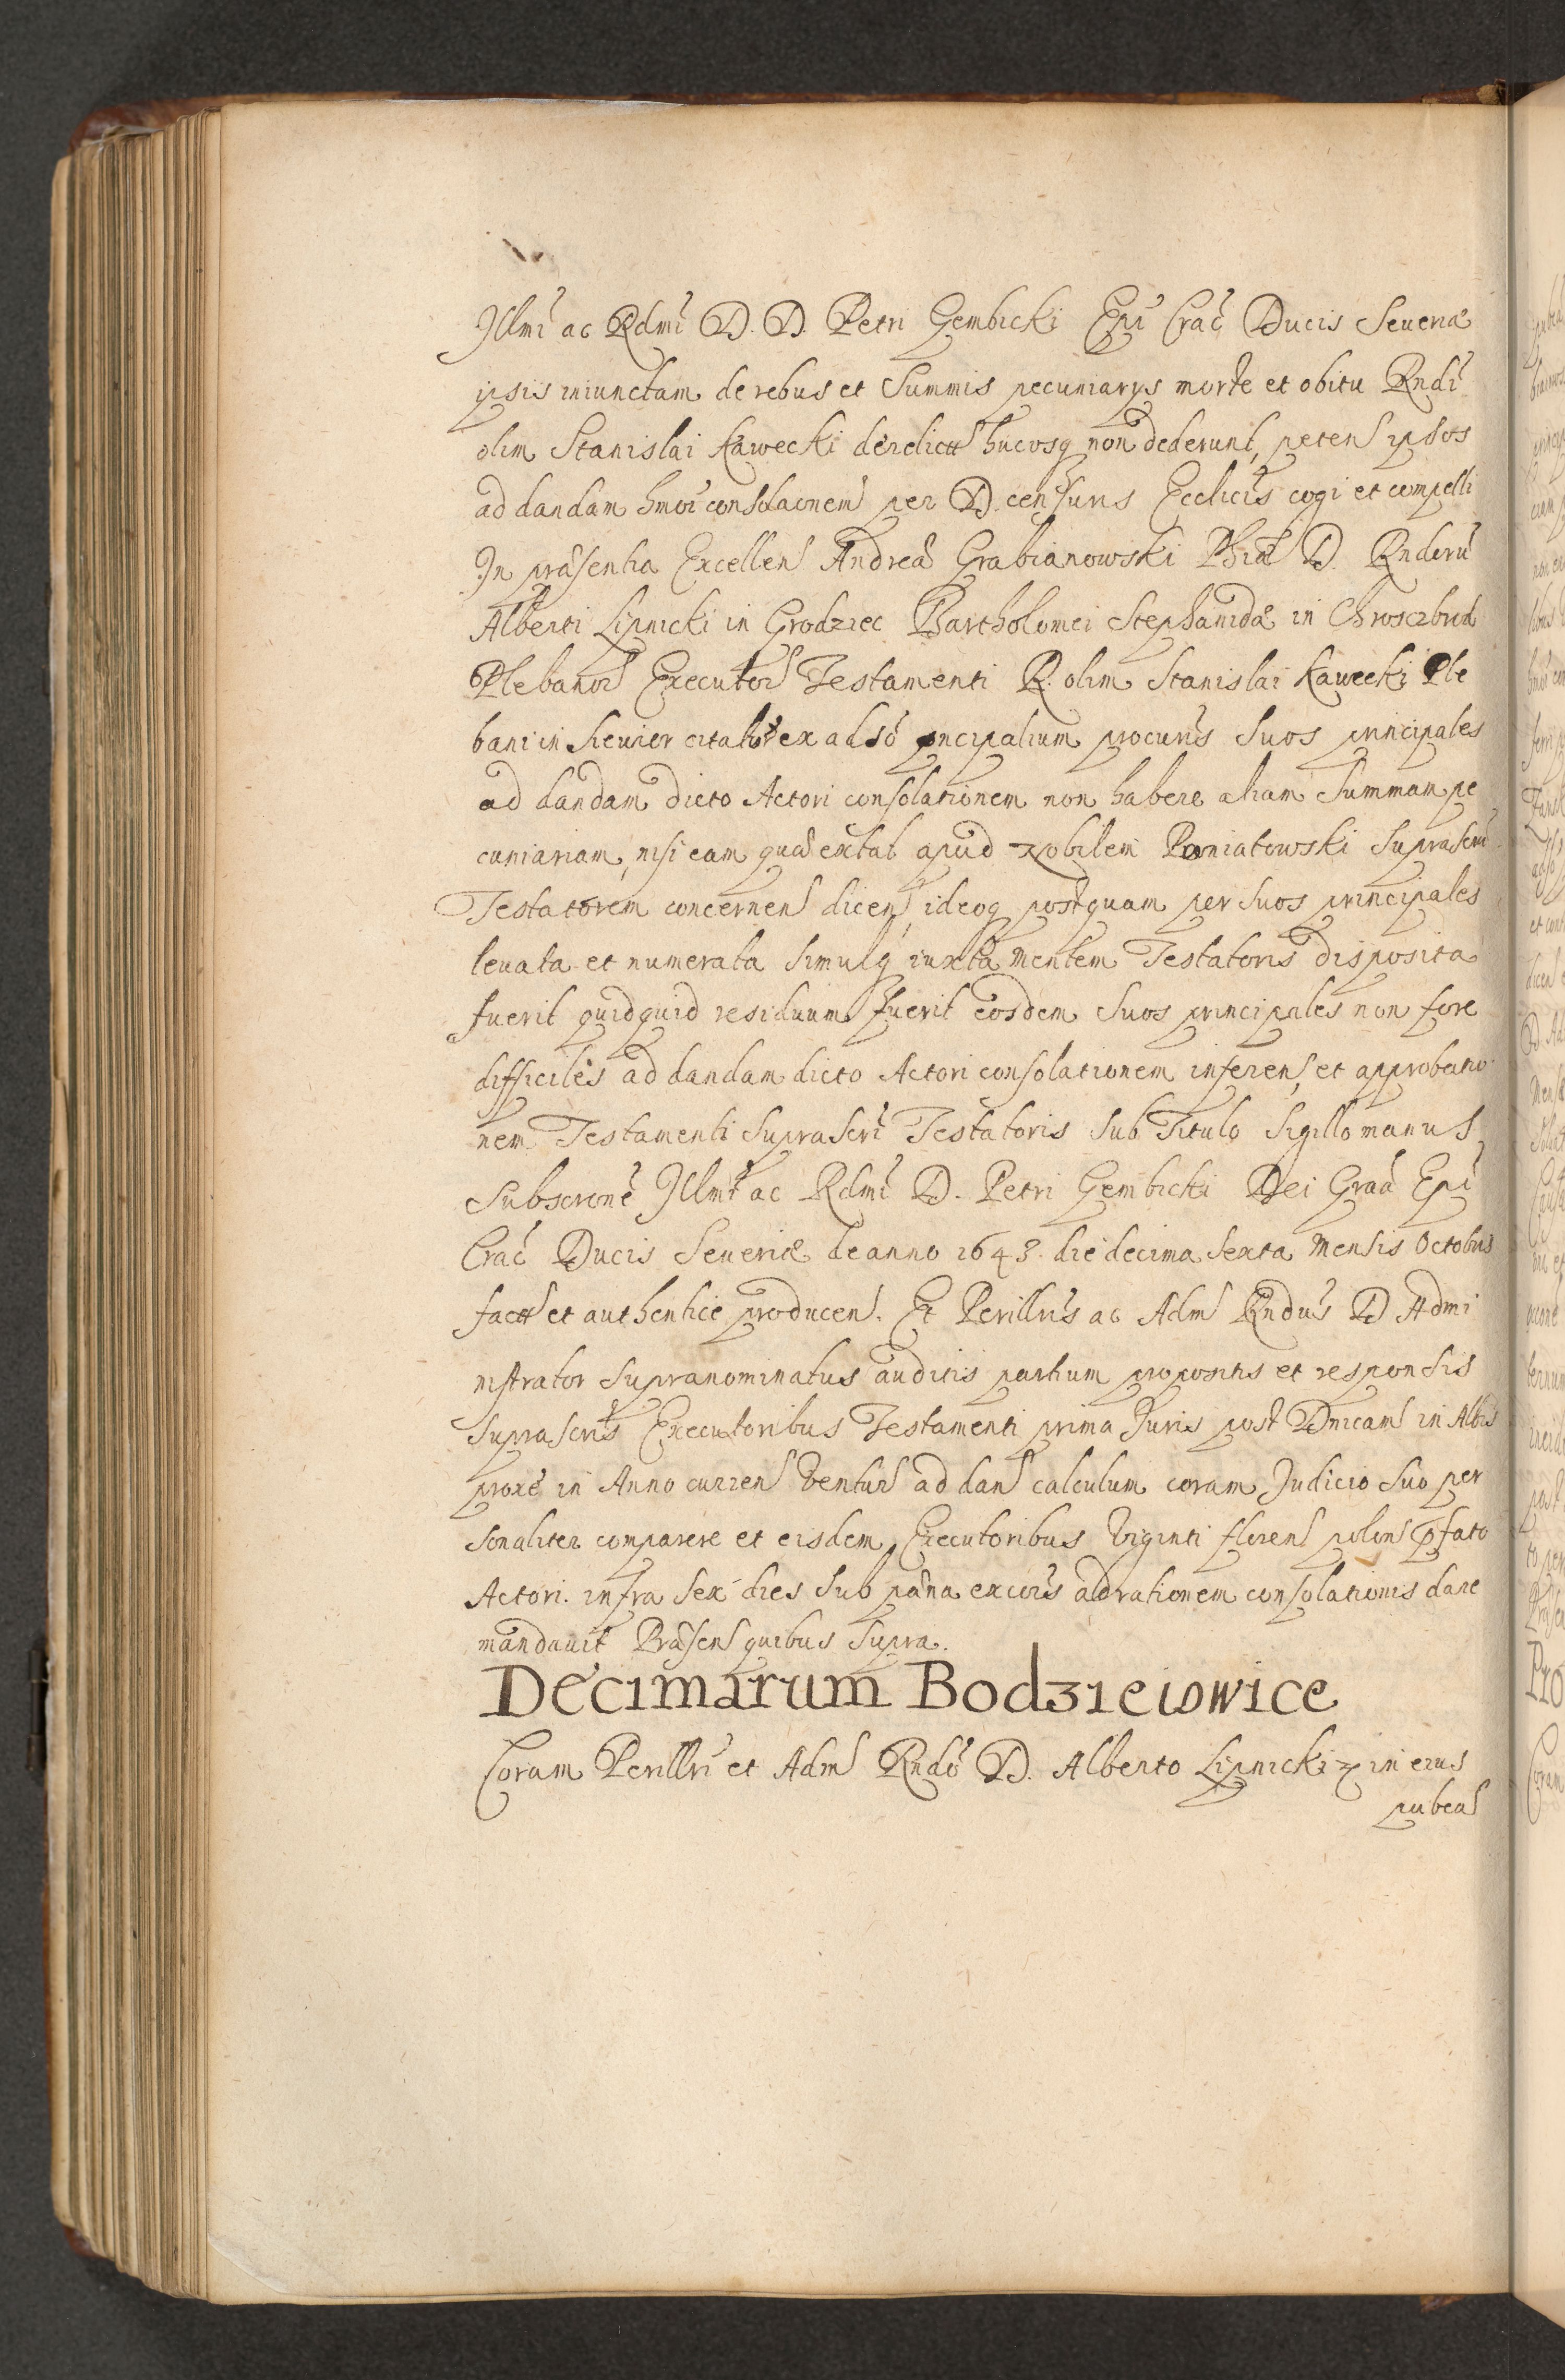 Illmi ac Rdmi D. D. Petri Gembicki Epi Crac Ducis Severiæ
ipsis iniunctam de rebus et Summis pecuniarys morte et obitu Rndi
olim Stanislai Kawecki derelict hucusq non dederunt, peten ipsos
ad dandam hmoi consolaonem per D. censuris Ecclicis cogi et compelli
In præsentia Excellen Andreæ Grabianowski Phiæ D. Rndoru
Alberti Lipnicki in Grodziec Bartholomei Stephanidæ in Chrosczbrod
Plebanor Executor Testamenti R. olim Stanislai Kawecki Ple
bani in Siewier citator ex adso pncipalium procuris Suos principales
ad dandam dicto Actori consolationem non habere aliam Summam pe
cuniariam, nisi eam quæ extat apud Nobilem Poniatowski Suprascri
Testatorem concernen dicen, ideoq postquam per Suos principales
levata et numerata Simulq iuxta mentem Testatoris disposita
fuerit quidquid residuum fuerit eosdem Suos principales non fore
difficiles ad dandam dicto Actori consolationem inferen, et approbatio
nem Testamenti Suprascri Testatoris Sub Titulo Sigillo manus
Subscrione Illmi ac Rdmi D. Petri Gembicki Dei Graa Epi
Crac Ducis Severiæ de anno 1648. die decima Sexta Mensis Octobris
fact et authentice producen. Et Perillris ac Adm Rndus D Admi
nistrator Supranominatus auditis partium propositis et responsis
Suprascris Executoribus Testamenti prima Juris post Dnicam in Albis
proxe in Anno curren ventur ad dan calculum coram Judicio Suo per
sonaliter comparere et eisdem Executoribus Viginti floren polon pfato
Actori. infra Sex dies Sub pæna excois ad rationem consolationis dare
mandavit Præsen quibus Supra.
Decimarum Bodzieiowice
Coram Perillri et Adm Rndo D. Alberto Lipnicki in eius
pubca